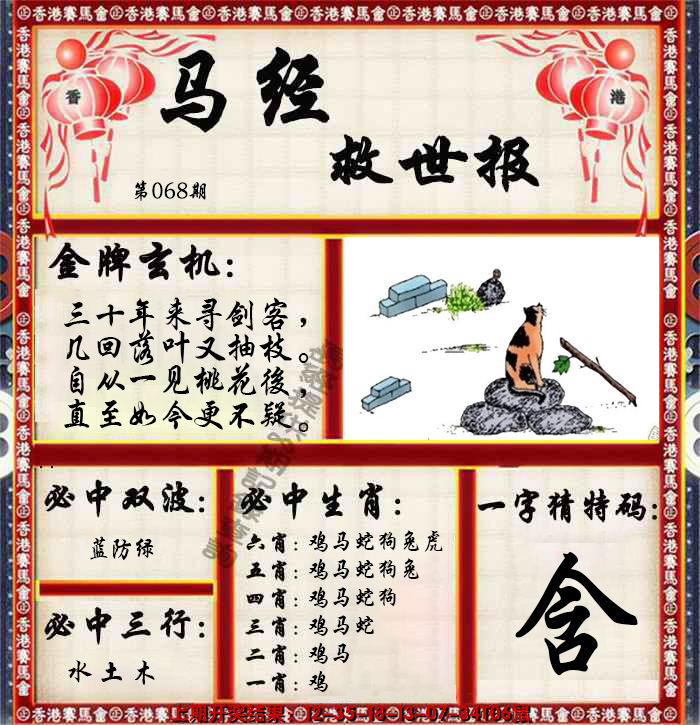 香港賽馬會 香港賽馬會 香港賽馬會 香港賽馬會 香港賽馬會 香港賽馬會
香
港
马经
救世报
第068期
金牌玄机：
三十年来寻剑客，
几回落叶又抽枝。
自从一见桃花後，
直至如今更不疑。
必中双波：
蓝防绿
必中三行：
水土木
必中生肖：
六肖：鸡马蛇狗兔虎
五肖：鸡马蛇狗兔
四肖：鸡马蛇狗
三肖：鸡马蛇
二肖：鸡马
一肖：鸡
一字猜特码：
含
上期开奖结果：12-35-18-13-07-34T06鼠